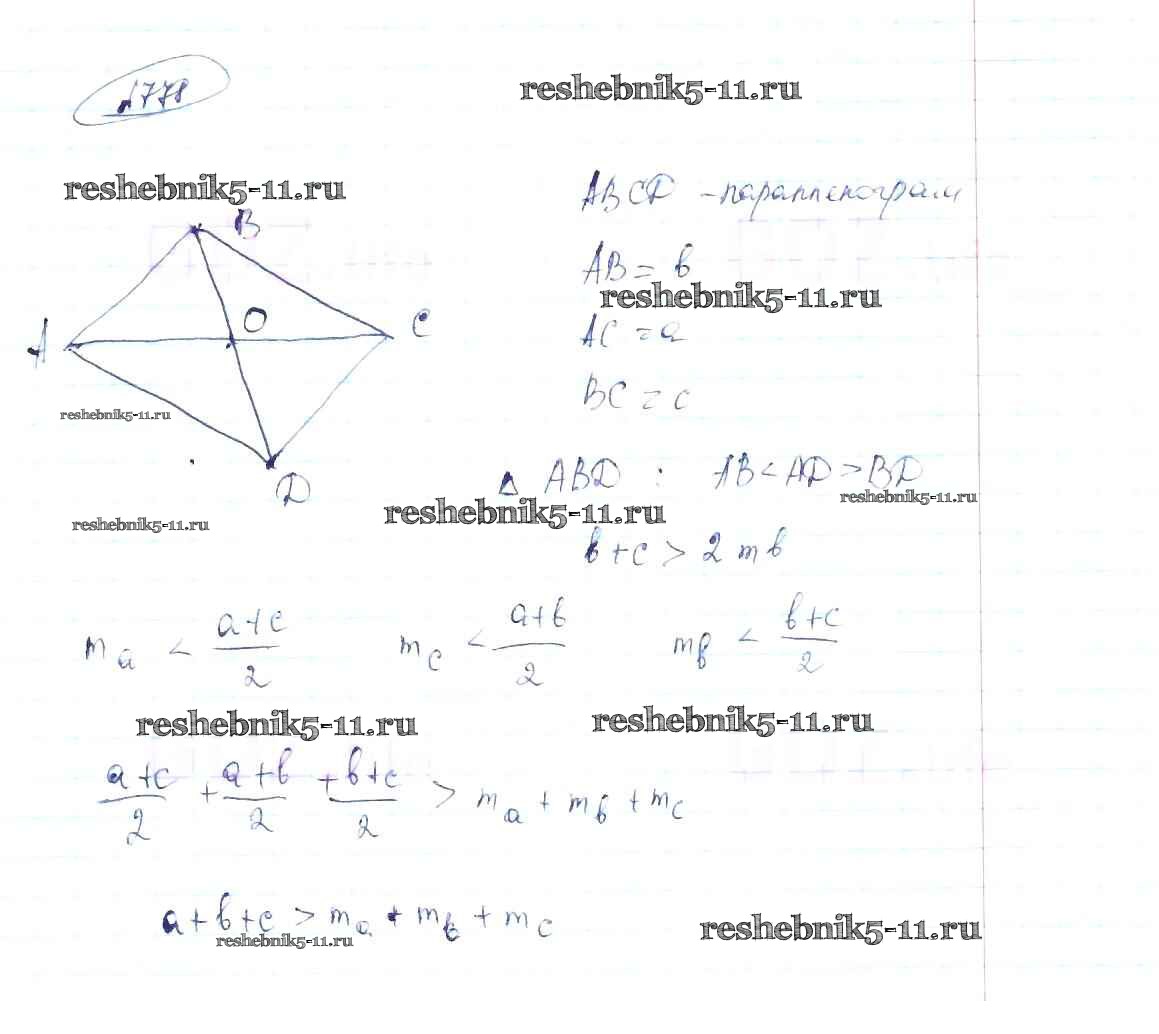 №778
reshebnik5-11.ru
reshebnik5-11.ru
ABCD – параллелограм
B
AB = b
reshebnik5-11.ru
O
A
C
AC = a
BC = c
reshebnik5-11.ru
D
△ ABD : AB < AD > BD
reshebnik5-11.ru
reshebnik5-11.ru
reshebnik5-11.ru
b + c > 2 mb
m_a < (a+c)/2 m_c < (a+b)/2 m_b < (b+c)/2
reshebnik5-11.ru
reshebnik5-11.ru
(a+c)/2 + (a+b)/2 + (b+c)/2 > m_a + m_b + m_c
a + b + c > m_a + m_b + m_c
reshebnik5-11.ru
reshebnik5-11.ru